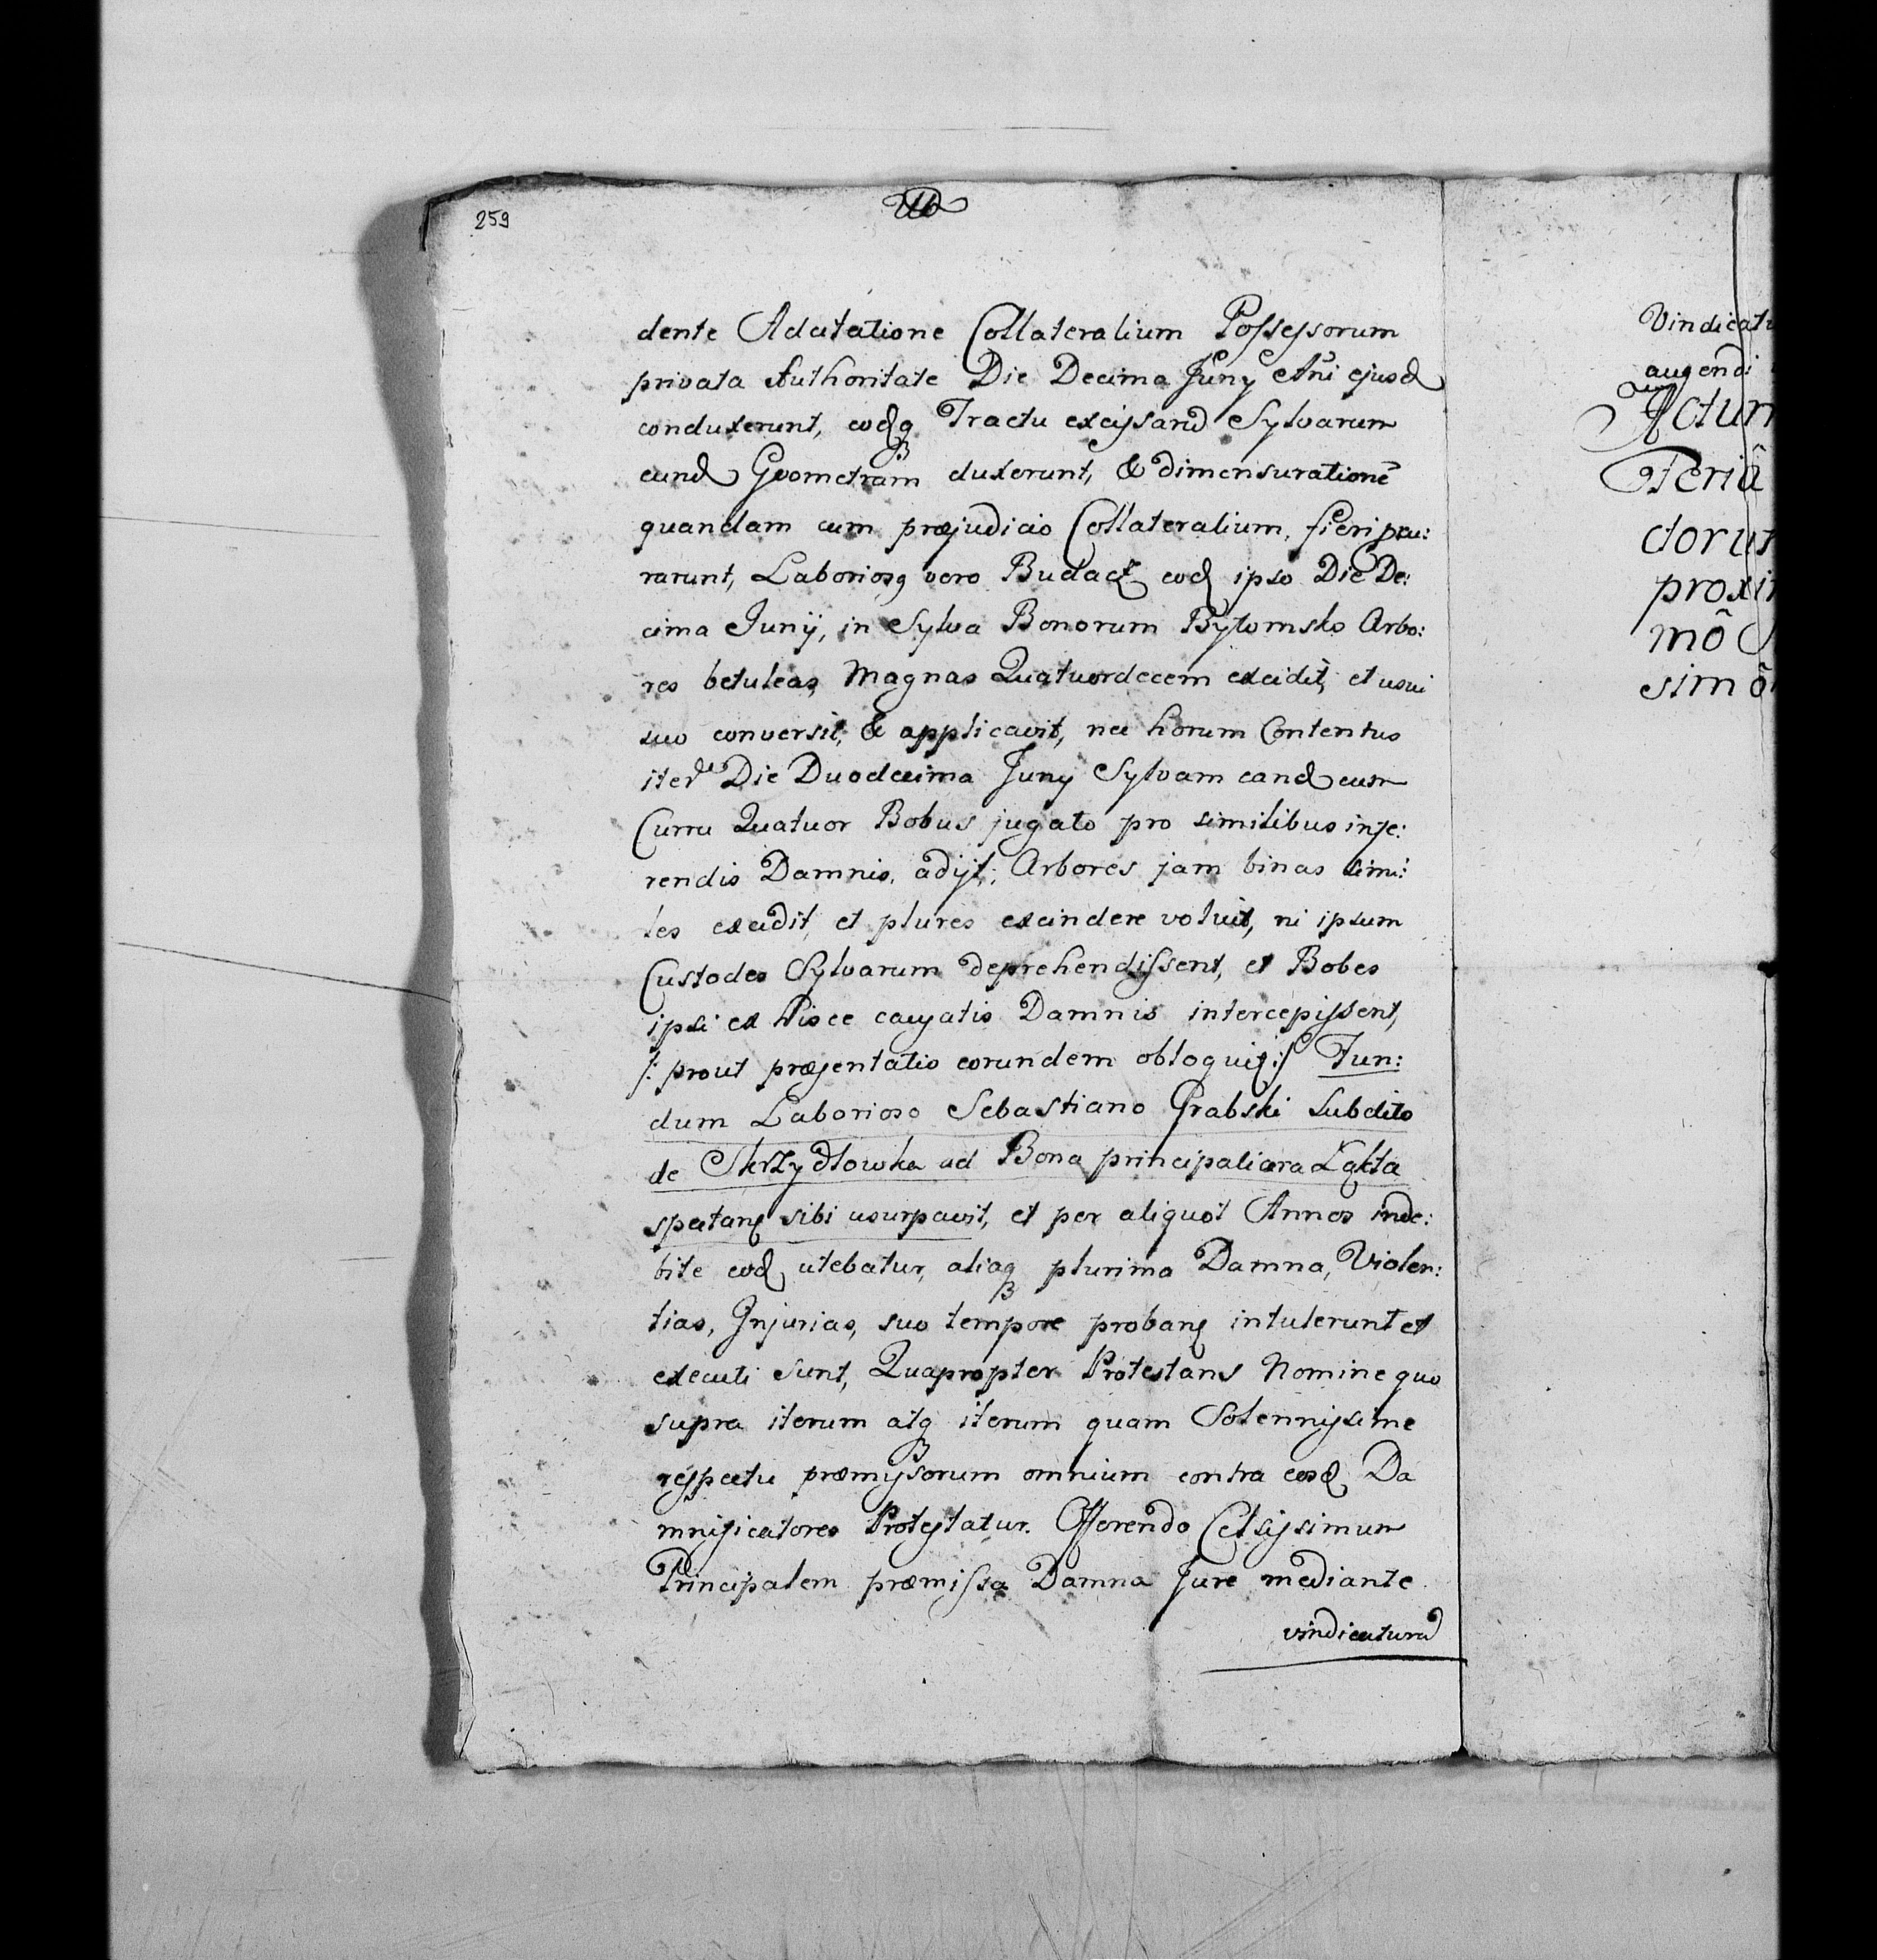 259
dente Adcitatione Collateralium Possessorum
privata Authoritate Die Decima Juny Añi ejusd
conduxerunt, eodq Tractu excissarũ Sylvarum
eund Geometram duxerunt, & dimensurationẽ
quandam cum præjudicio Collateralium, fieri procu:
rarunt, Laboriosq vero eod ipso Die De:
cima Junij, in Sylva Bonorum Bytomsko Arbo:
res betuleas, Magnas Quatuordecem excidit, et usui
suo conversit, & applicavit, nec horum Contentus
iterũ Die Duodecima Juny Sylvam eand cum
Curru Quatuor Bobus jugato pro similibus infe:
rendis Damnis, adijt, Arbores jam binas simi:
les excidit, et plures excindere voluit, ni ipsum
Custodes Sylvarum deprehendissent, et Bobes
ipsi ex hisce causatis Damnis intercepissent,
/: prout præsentatio eorundem obloquit :/ Fun:
dum Laborioso Sebastiano Grabski Subdito
de Skrzydlowka ad Bona principaliora Łąkta
spectanʠ sibi usurpavit, et per aliquot Annos inde:
bite eod utebatur, aliaq plurima Damna, Violen:
tias, Injurias, suo tempore probanʠ intulerunt et
executi sunt, Quapropter Protestans Nomine quo
supra iterum atq iterum quam Solennissime
respectu præmissorum omnium contra eosd Da
mnificatores Protestatur. Offerendo Celsissimum
Principalem præmissa Damna Jure mediante
vindicaturũ
Vindicatu
augendi
Actum
Feriâ
ctorum
proxi
mô
simô